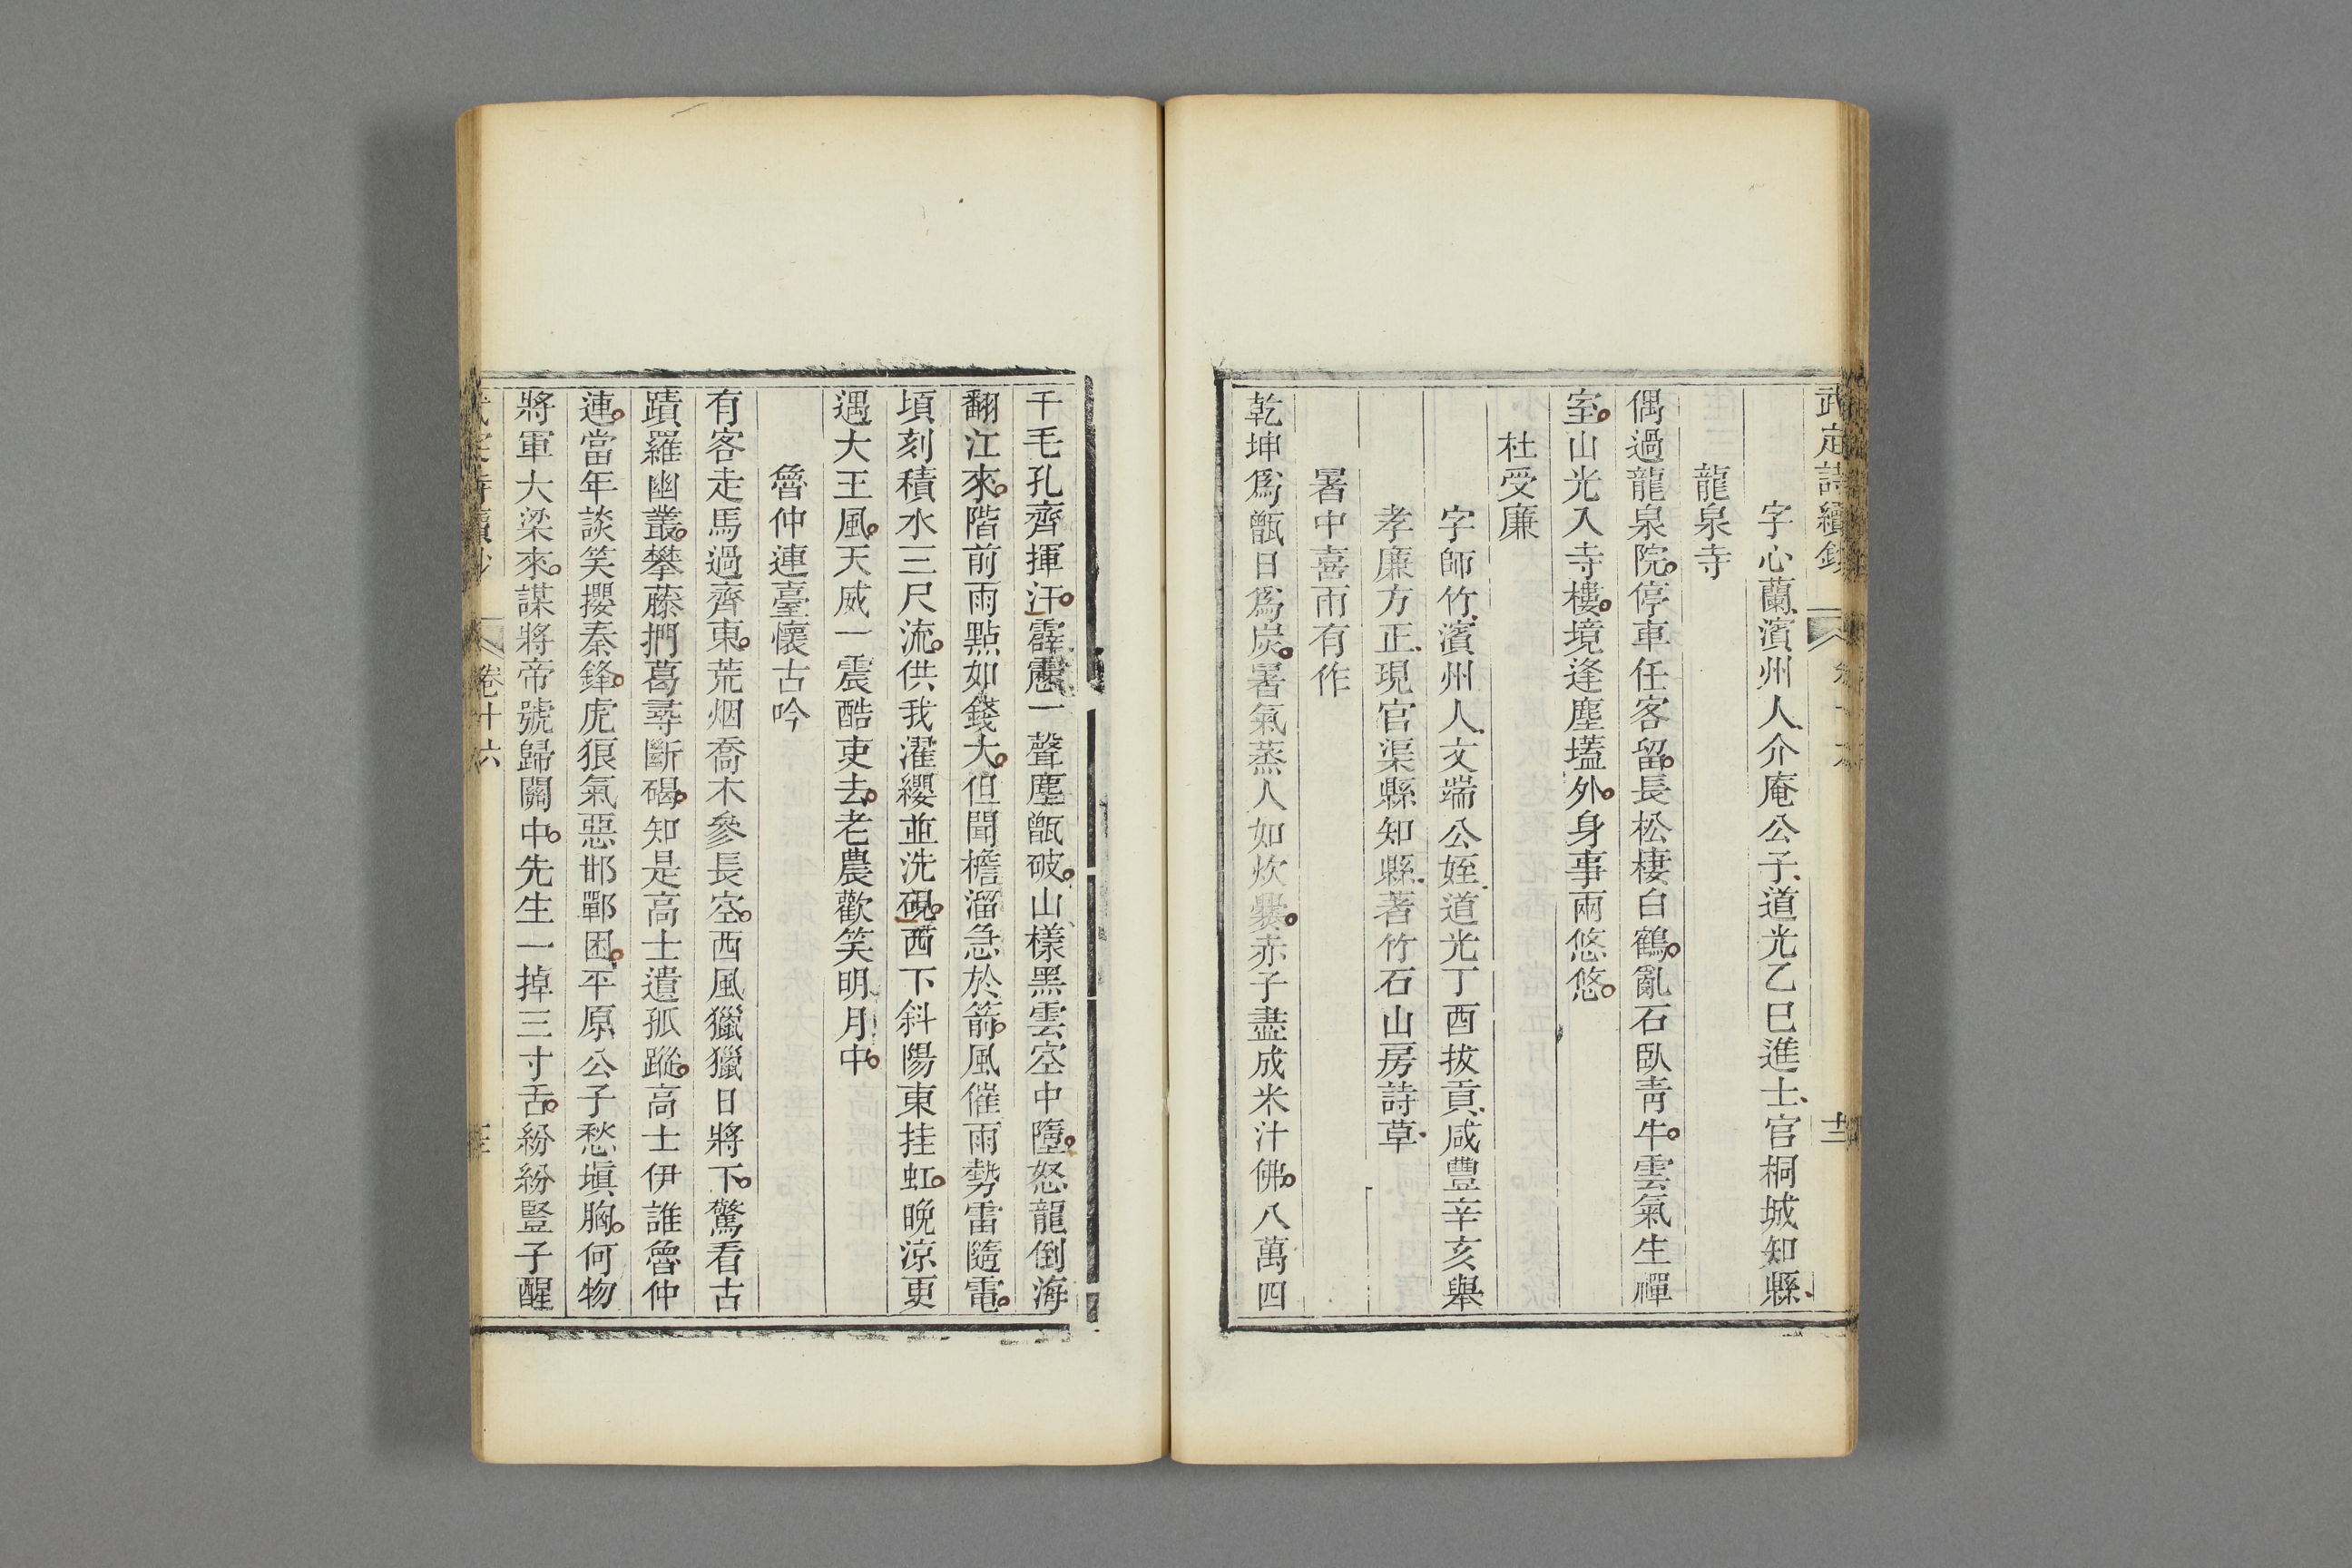 武定詩續鈔
字心蘭濱州人介庵公子道光乙巳進士官桐城知縣
龍泉寺
偶過龍泉院停車任客留長松棲白鶴亂石臥青牛雲氣生禪
室山光入寺樓境逢塵壒外身事兩悠悠
杜受廉
字師竹濱州人文端公姪道光丁酉拔貢咸豐辛亥舉
孝廉方正現官渠縣知縣著竹石山房詩草
暑中喜雨有作
乾坤爲甑日爲炭暑氣蒸人如炊爨赤子盡成米汁佛八萬四
千毛孔齊揮汗霹靂一聲塵甑破山樣黑雲空中墮怒龍倒海
翻江來階前雨點如錢大但聞檐溜急於箭風催雨勢雷隨電
頃刻積水三尺流供我濯纓並洗硯西下斜陽東挂虹晚涼更
遇大王風天威一震酷吏去老農歡笑明月中
魯仲連臺懷古吟
有客走馬過齊東荒烟喬木參長空西風獵獵日將下驚看古
蹟羅幽叢攀藤捫葛尋斷碣知是高士遺孤蹤高士伊誰魯仲
連當年談笑攖秦鋒虎狼氣惡邯鄲困平原公子愁塡胸何物
將軍大梁來謀將帝號歸關中先生一掉三寸舌紛紛豎子醒
卷十六